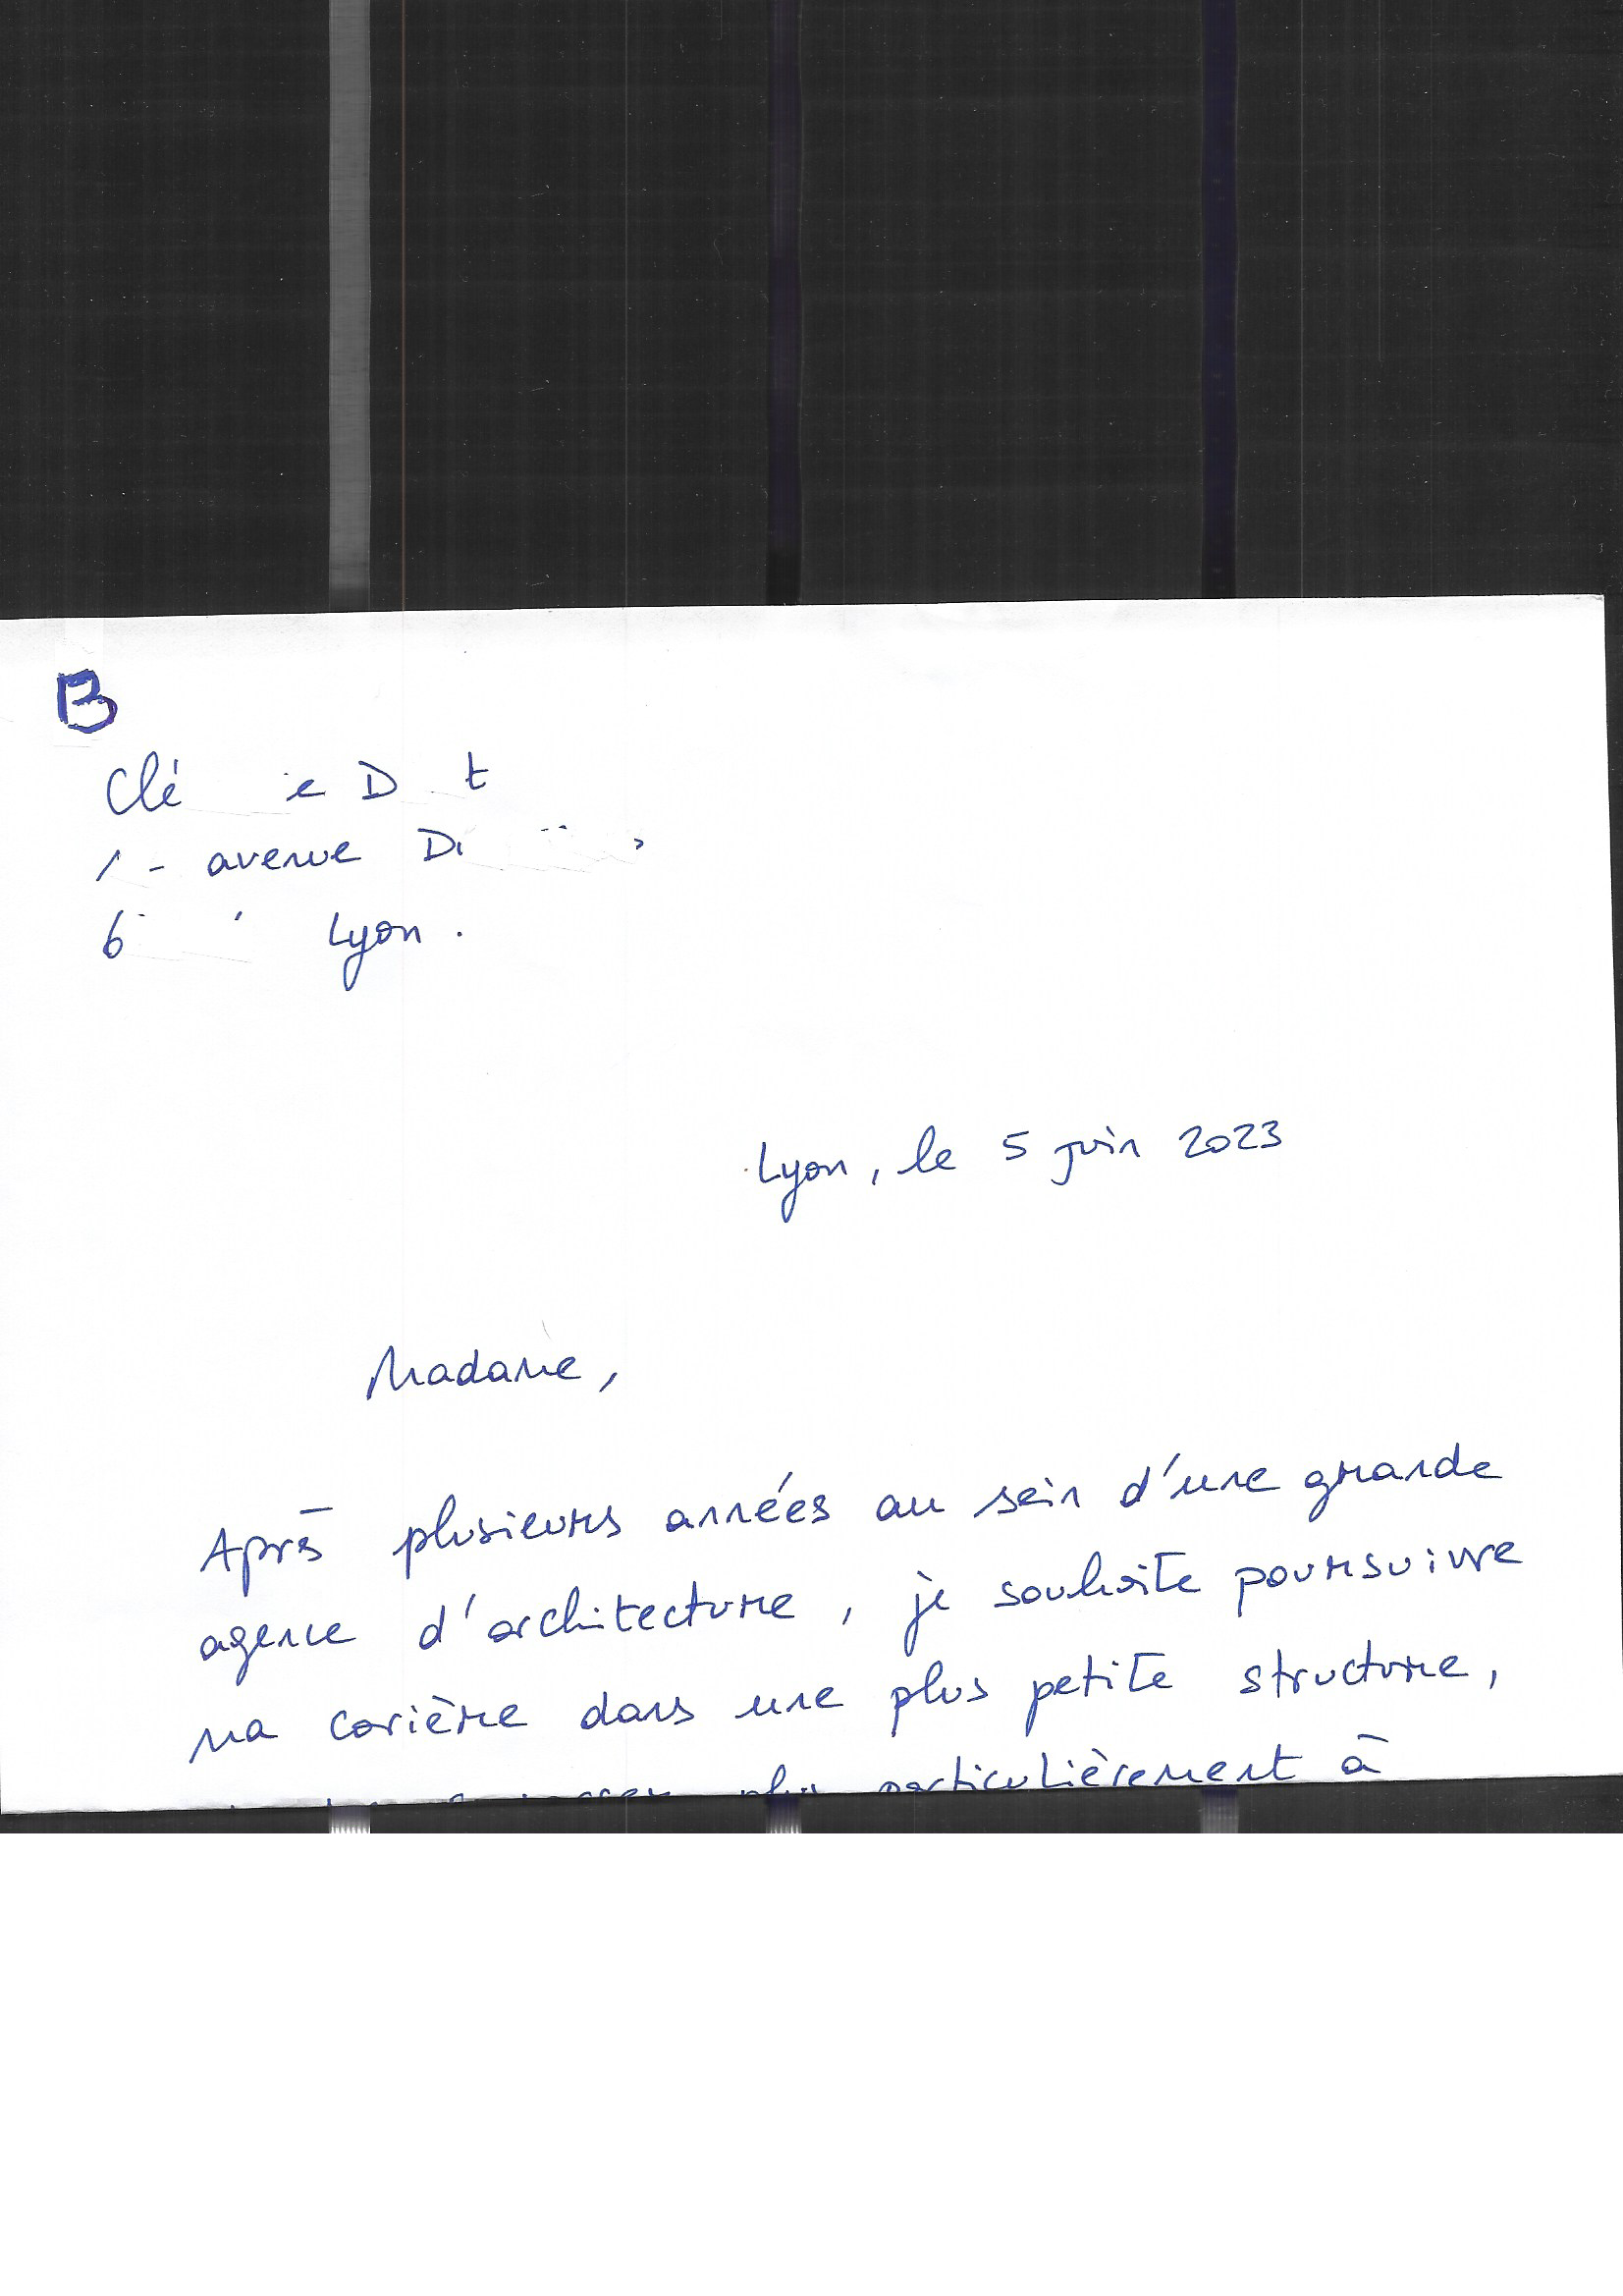 B
Clé e D t
1 - avenue D
6 Lyon.
Lyon, le 5 juin 2023
Madame,
Après plusieurs années au sein d'une grande
agence d'architecture, je souhaite poursuivre
ma carière dans une plus petite structure,
particulièrement à